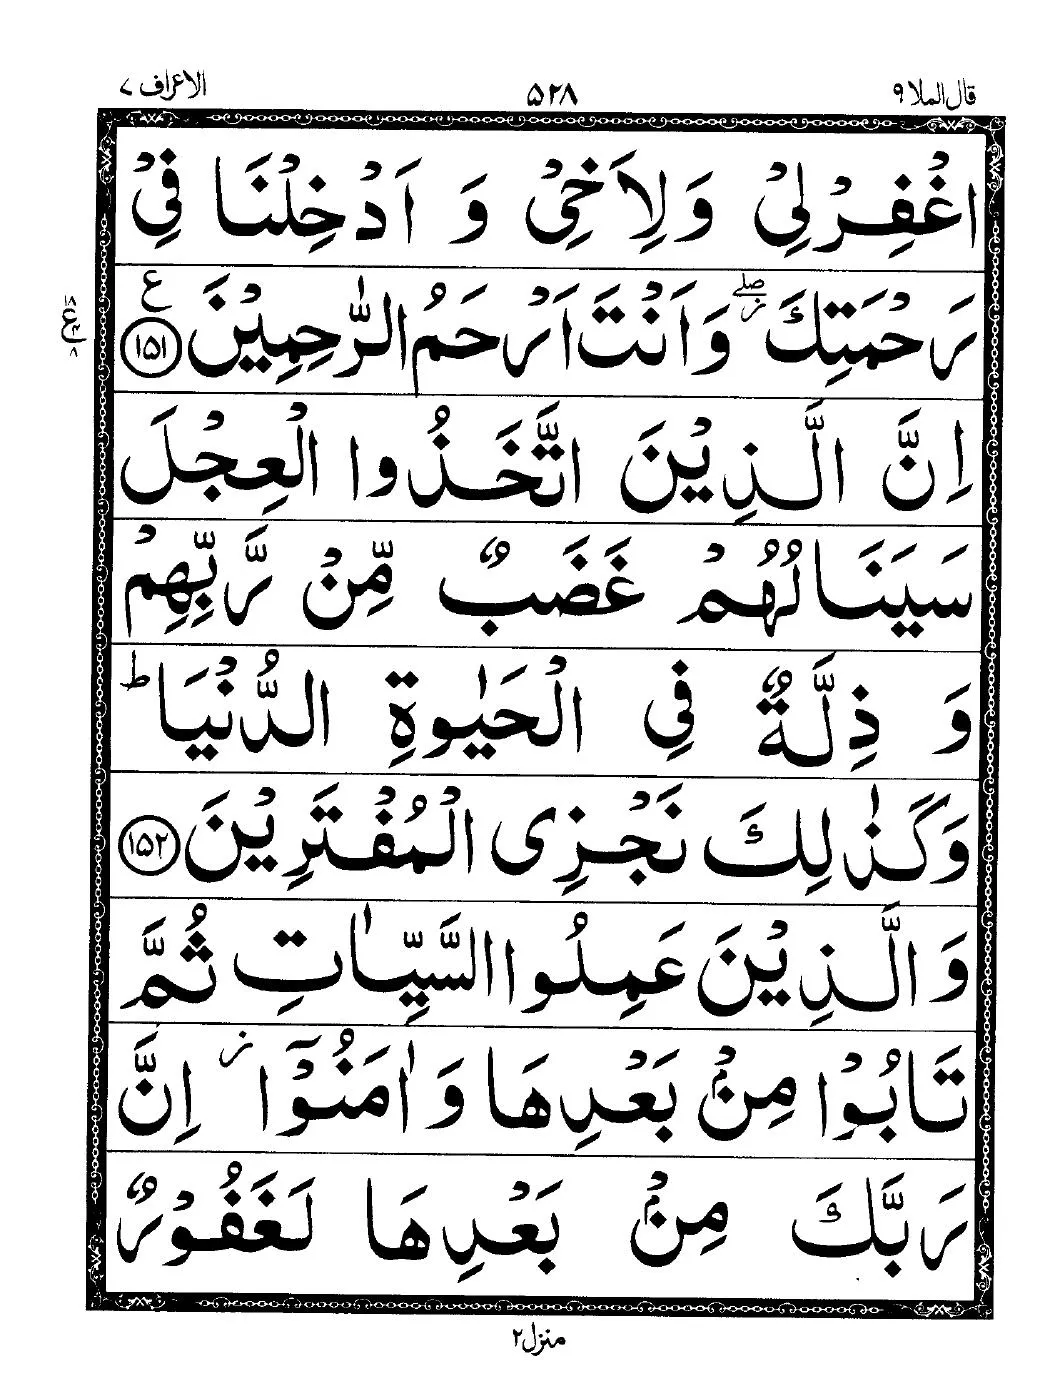 الاعراف ٧
۵۲۸
قال الملا ٩
اغْفِرْ لِیْ وَ لِاَخِیْ وَ اَدْخِلْنَا فِیْ
رَحْمَتِكَ ۖ٘ وَ اَنْتَ اَرْحَمُ الرّٰحِمِیْنَ ﴿۱۵۱﴾ ع
۱۸
ع
۸
اِنَّ الَّذِیْنَ اتَّخَذُوا الْعِجْلَ
سَیَنَالُهُمْ غَضَبٌ مِّنْ رَّبِّهِمْ
وَ ذِلَّةٌ فِی الْحَیٰوةِ الدُّنْیَا ؕ
وَ كَذٰلِكَ نَجْزِی الْمُفْتَرِیْنَ ﴿۱۵۲﴾
وَ الَّذِیْنَ عَمِلُوا السَّیِّاٰتِ ثُمَّ
تَابُوْا مِنْۢ بَعْدِهَا وَ اٰمَنُوْۤا ؗ اِنَّ
رَبَّكَ مِنْۢ بَعْدِهَا لَغَفُوْرٌ
منزل ۲